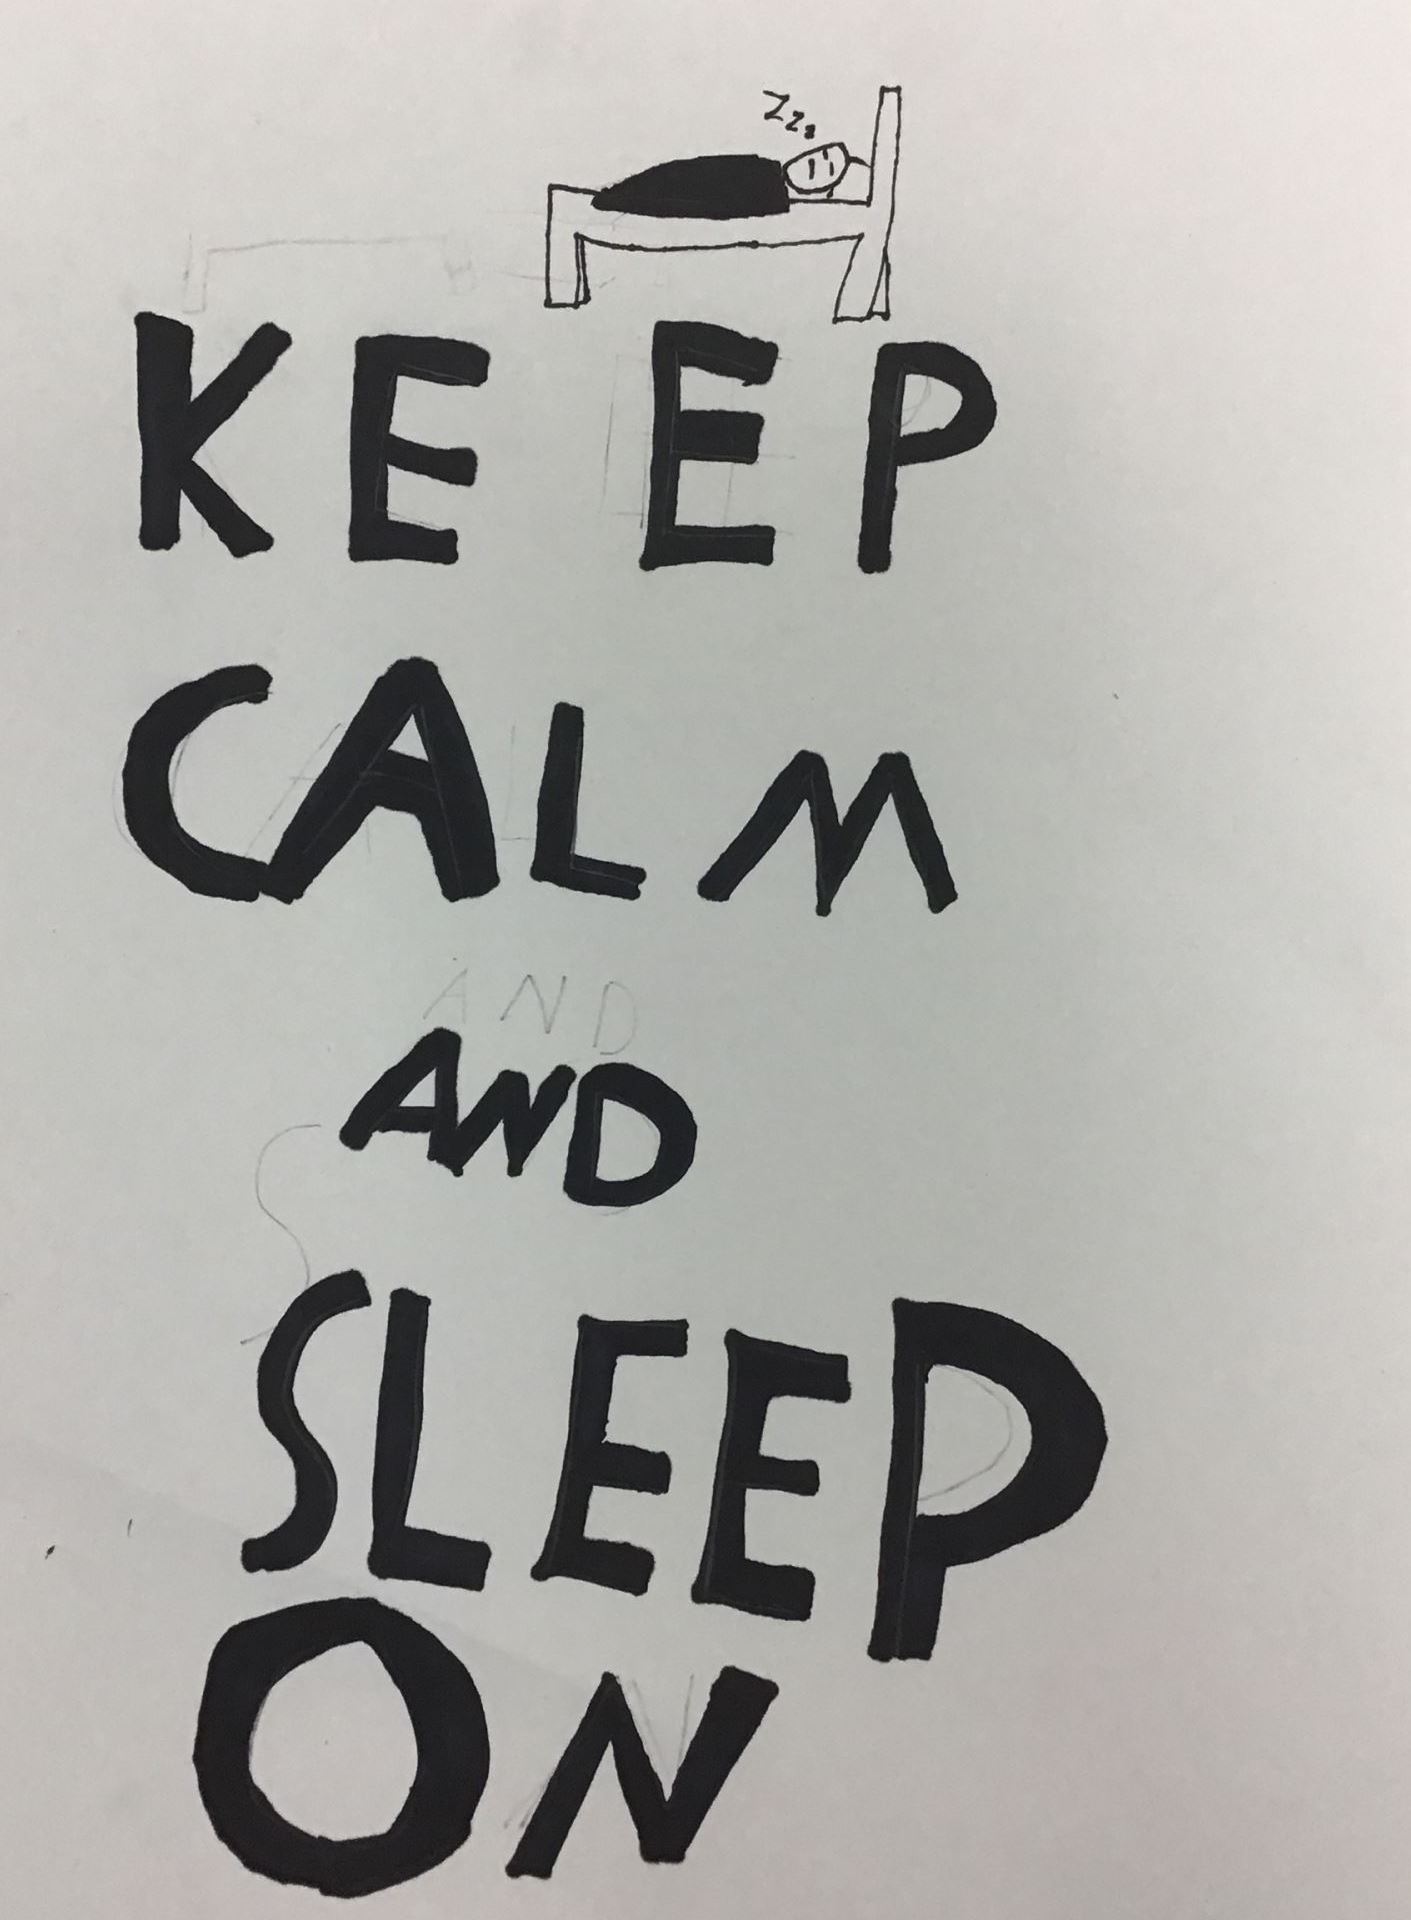 Zzz
KEEP
CALM
AND
AND
SLEEP
ON